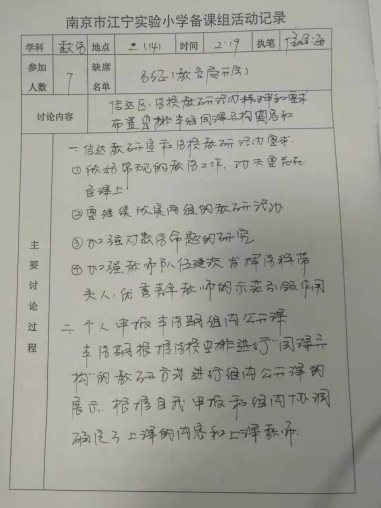 南京市江宁实验小学备课组活动记录
学科 数学 地点 二(14) 时间 2.19 执笔
参加人数 7 缺席名单 (教育局开会)
讨论内容 传达区、学校教研活动精神和要求
布置安排本组同课异构要名和
主要讨论过程
一 传达教研室和学校教研活动要求
①做好常规的教学工作，功夫要花在
在课上
②要继续做实两组的教研活动
③加强对数学命题的研究
④加强教师队伍建设，发挥学科带
头人，优秀青年教师的示范引领作用
二 个人申报本学期组内公开课
本学期根据学校安排进行"同课异
构"的教研方式进行组内公开课的
展示，根据自我申报和组内协调
确定了上课的内容和上课教师.